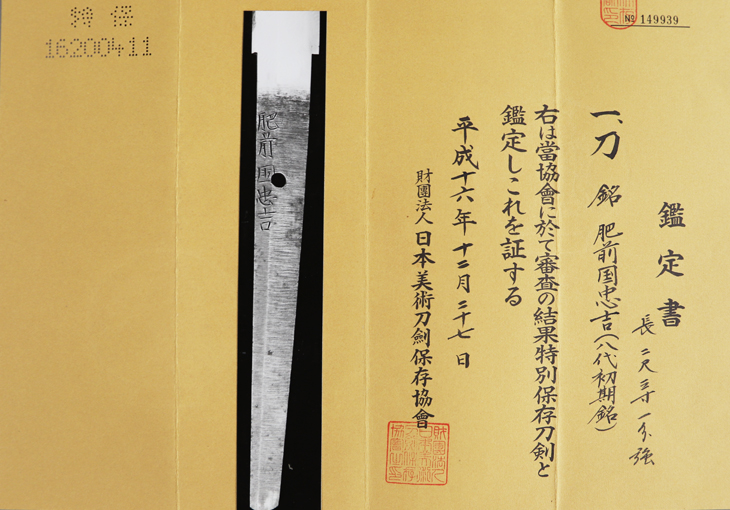 鑑定書
一、刀 銘 肥前国忠吉(八代初期銘)
長 二尺三寸一分強
右は當協會に於て審査の結果特別保存刀剣と
鑑定しこれを証する
平成十六年十二月二十七日
財團法人 日本美術刀劍保存協會
№ 149939
肥前国忠吉
特保
16200411